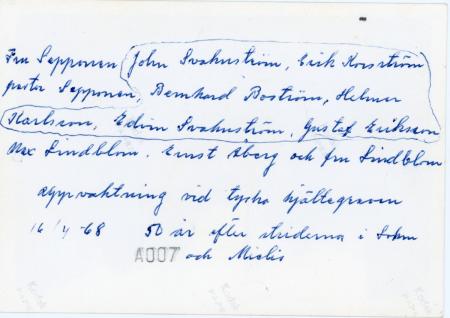 Fru Sepponen John Svahnström, Erik Korsström
pastor Sepponen, Bernhard Boström, Helmer
Karlsson, Edvin Svahnström, Gustaf Eriksson
Max Lindblom. Ernst Åberg och fru Lindblom
Uppvaktning vid tyska hjältegraven
16/4-68 50 år efter striderna i Sohm
A007 och Mielis